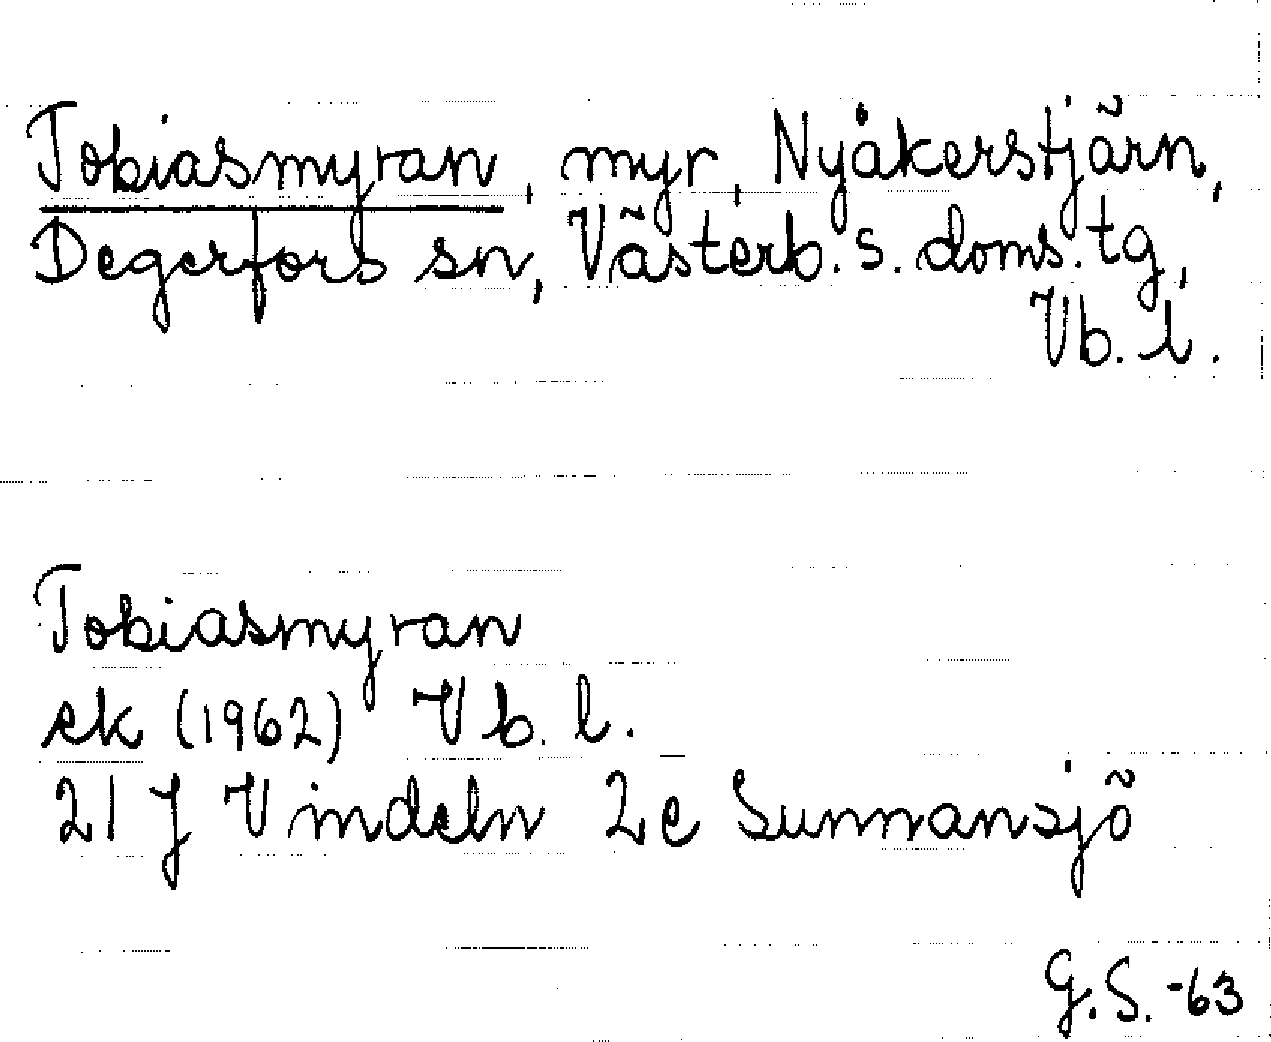 Tobiasmyran, myr, Nyåkerstjärn,
Degerfors sn, Västerb. s. doms. tg,
Vb. l.
Tobiasmyran
ek (1962) Vb. l.
21 J Vindeln 2e Sunnansjö
G.S. -63